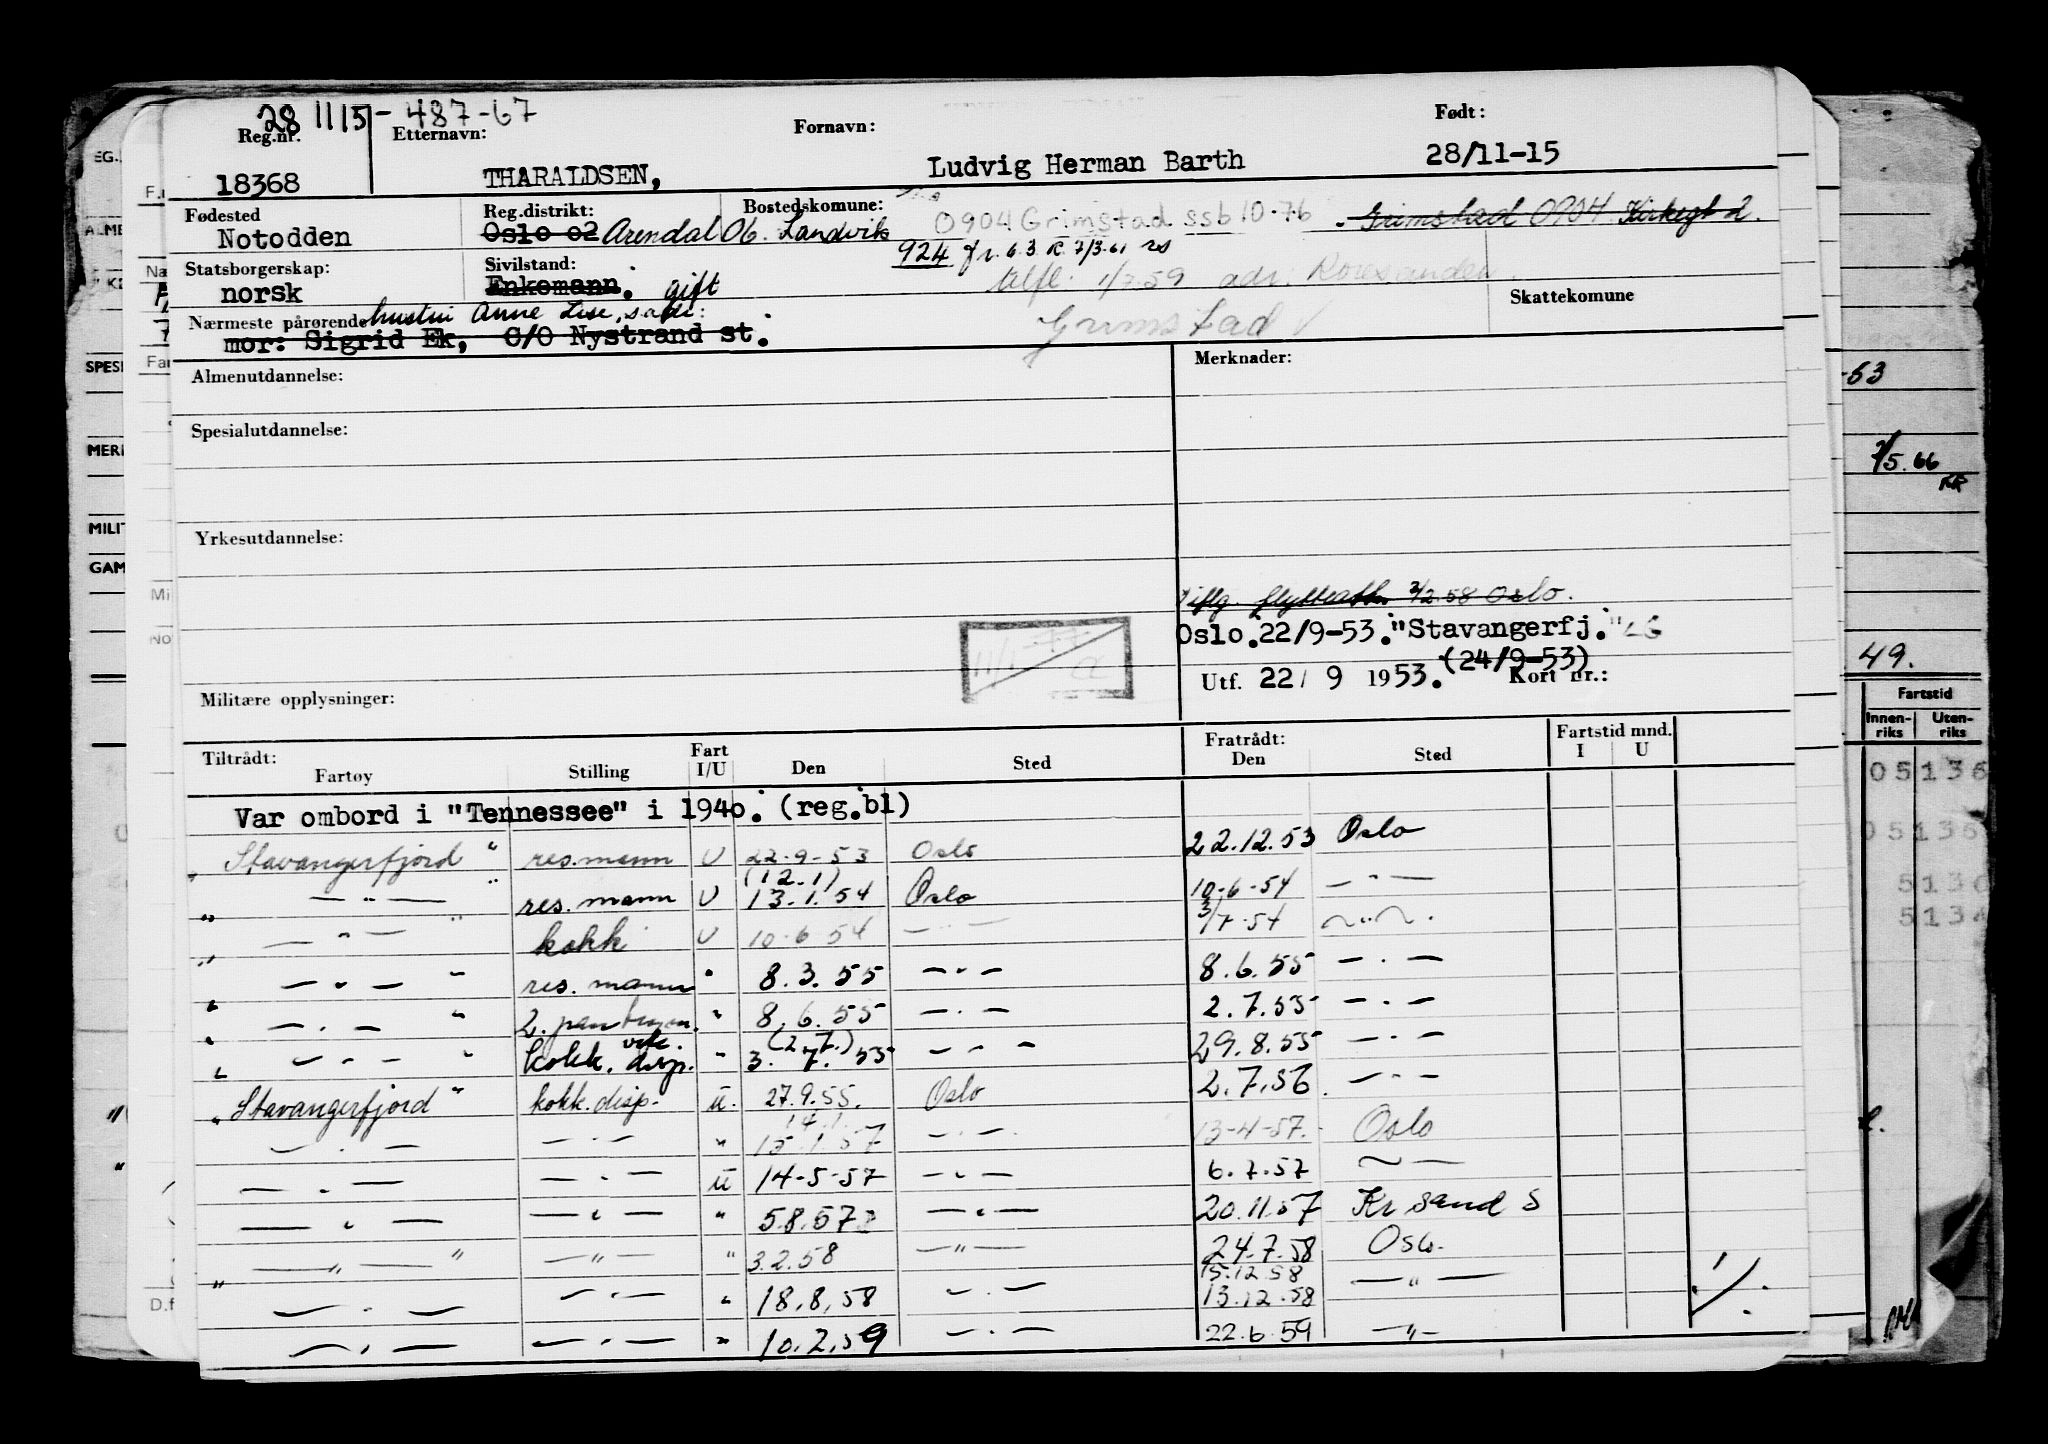 28 1115 - 487-67
Reg.nr. Etternavn: Fornavn: Født:
18368 THARALDSEN, Ludvig Herman Barth 28/11-15
Fødested Reg.distrikt: Bostedskomune:
Notodden Oslo o2 Arendal 06. Landvik 0904 Grimstad ssb 10-76 Grimstad 0904 Kirkegt 2.
924 fr. 6.3. R. 7/3-61
Statsborgerskap: Sivilstand:
norsk Enkemann. gift 1/7.59 adr.
Skattekomune
Nærmeste pårørende hustru Anne Lise, s.adr:
mor: Sigrid Ek, C/O Nystrand st. Grimstad
Almenutdannelse: Merknader:
Spesialutdannelse:
Yrkesutdannelse:
3/2.58 Oslo.
Oslo.22/9-53."Stavangerfj."
(24/9-53)
Utf. 22/ 9 1953. Kort nr.:
Militære opplysninger:
Tiltrådt: Fratrådt: Fartstid mnd.
Fartøy Stilling Fart I/U Den Sted Den Sted I U
Var ombord i "Tennessee" i 1940. (reg.bl)
"Stavangerfjord" res.mann U 22-9-53 Oslo 22.12.53 Oslo
(12.1)
" — " — " res. mann U 13.1.54 Oslo 10-6-54 — " —
" — " — " kokk U 10-6-54 — " — 3/7-54 — " — .
" — " — " res. mann " 8.3.55 — " — 8.6.55 — " —
" — " — " 2. pantryman. " 8.6.55 — " — 2.7.55 — " —
vik. (2.7.)
" — " — " kokk. disp. " 3.7.55 — " — 29.8.55 — " —
"Stavangerfjord" kokk.disp. U. 27.9.55. Oslo 2.7.56. — " —
14.1.
— " — — " — " 15.1.57 — " — 13-4-57. Oslo
— " — — " — U 14-5-57 — " — 6.7.57 — " —
— " — — " — " 5.8.57 — " — 20.11.57 Kr sand S
" — " — " — " — " 3.2.58 — " — 24.7.58 Oslo.
15.12.58
— " — — " — " 18.8.58 — " — 13.12.58 — " —
— " — — " — " 10.2.59 — " — 22.6.59 — " —
SPESI
MERI
MILIT
GAM
-53
2/5.66
49.
Fartstid
Innen-riks Uten-riks
05136
05136
5136
5134